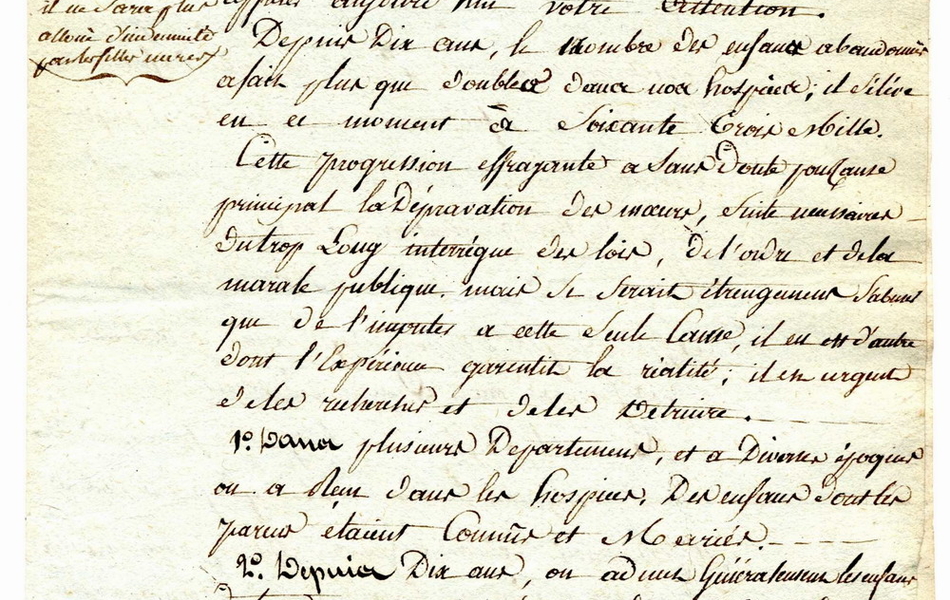 il ne sera plus
alloué d'indemnité
par les filles meres
appeler aujourd'hui votre attention.
Depuis Dix ans, le nombre des enfans abandonnés
a fait plus que doubler dans nos hospices; il s'élève
en ce moment à Soixante Trois Mille.
Cette progression effrayante a sans Doute pour Cause
principal la Dépravation des mœurs, suite nécessaire
du trop Long interrègne des lois, de l'ordre et de la
morale publique. mais se serait étrangement s'abuser
que de l'imputer a cette seule Cause, il en est d'autre
dont l'Expérience garentit la réalité; il est urgent
de les rechercher et de les Détruire.
1º. Dans plusieurs Departemens, et a Diverses époques
on a Reçu dans les hospices, Des enfans dont les
parens étaient Connûs et Mariés.
2º. Depuis Dix ans, on admit Généralement les enfans